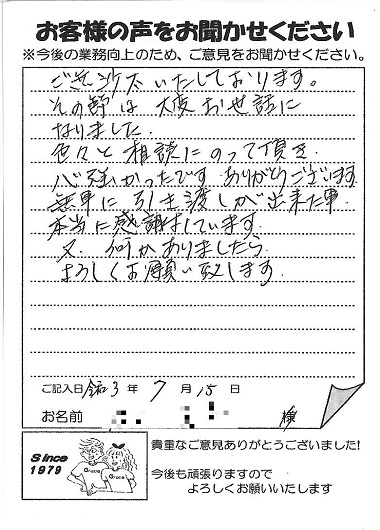 お客様の声をお聞かせください
※今後の業務向上のため、ご意見をお聞かせください。
ご無沙汰いたしております。
その節は大変お世話に
なりました.
色々と相談にのって頂き
心強かったです ありがとうございます
無事に引き渡しが出来た事
本当に感謝しています.
又、何かありましたら
よろしくお願い致します
ご記入日 令和3年 7月 15日
お名前 様
貴重なご意見ありがとうございました!
今後も頑張りますので
よろしくお願いいたします
Since
1979
Grace
Grace